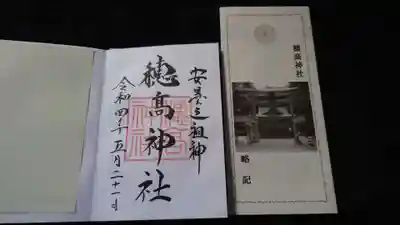 安曇之祖神
穂髙神社
令和四年五月二十一日
穂高神社
略記